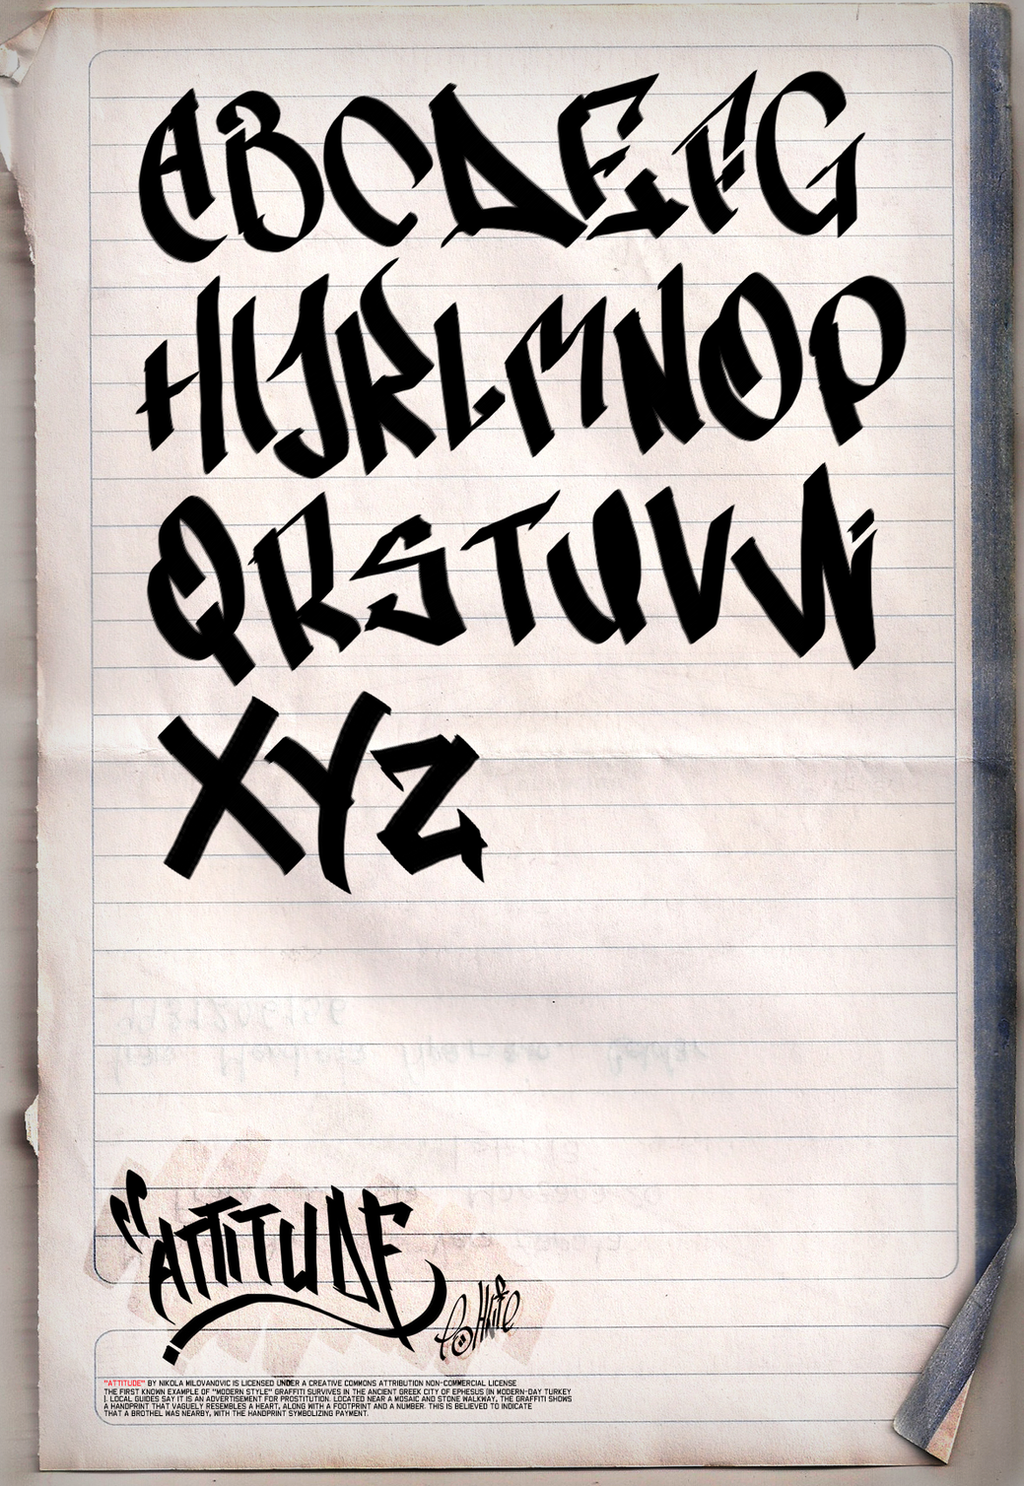 ABCDEFG
HIJKLMNOP
QRSTUVW
XYZ
"ATTITUDE
"ATTITUDE" BY NIKOLA MILOVANOVIC IS LICENSED UNDER A CREATIVE COMMONS ATTRIBUTION NON-COMMERCIAL LICENSE
THE FIRST KNOWN EXAMPLE OF "MODERN STYLE" GRAFFITI SURVIVES IN THE ANCIENT GREEK CITY OF EPHESUS (IN MODERN-DAY TURKEY
). LOCAL GUIDES SAY IT IS AN ADVERTISEMENT FOR PROSTITUTION. LOCATED NEAR A MOSAIC AND STONE WALKWAY, THE GRAFFITI SHOWS
A HANDPRINT THAT VAGUELY RESEMBLES A HEART, ALONG WITH A FOOTPRINT AND A NUMBER. THIS IS BELIEVED TO INDICATE
THAT A BROTHEL WAS NEARBY, WITH THE HANDPRINT SYMBOLIZING PAYMENT.